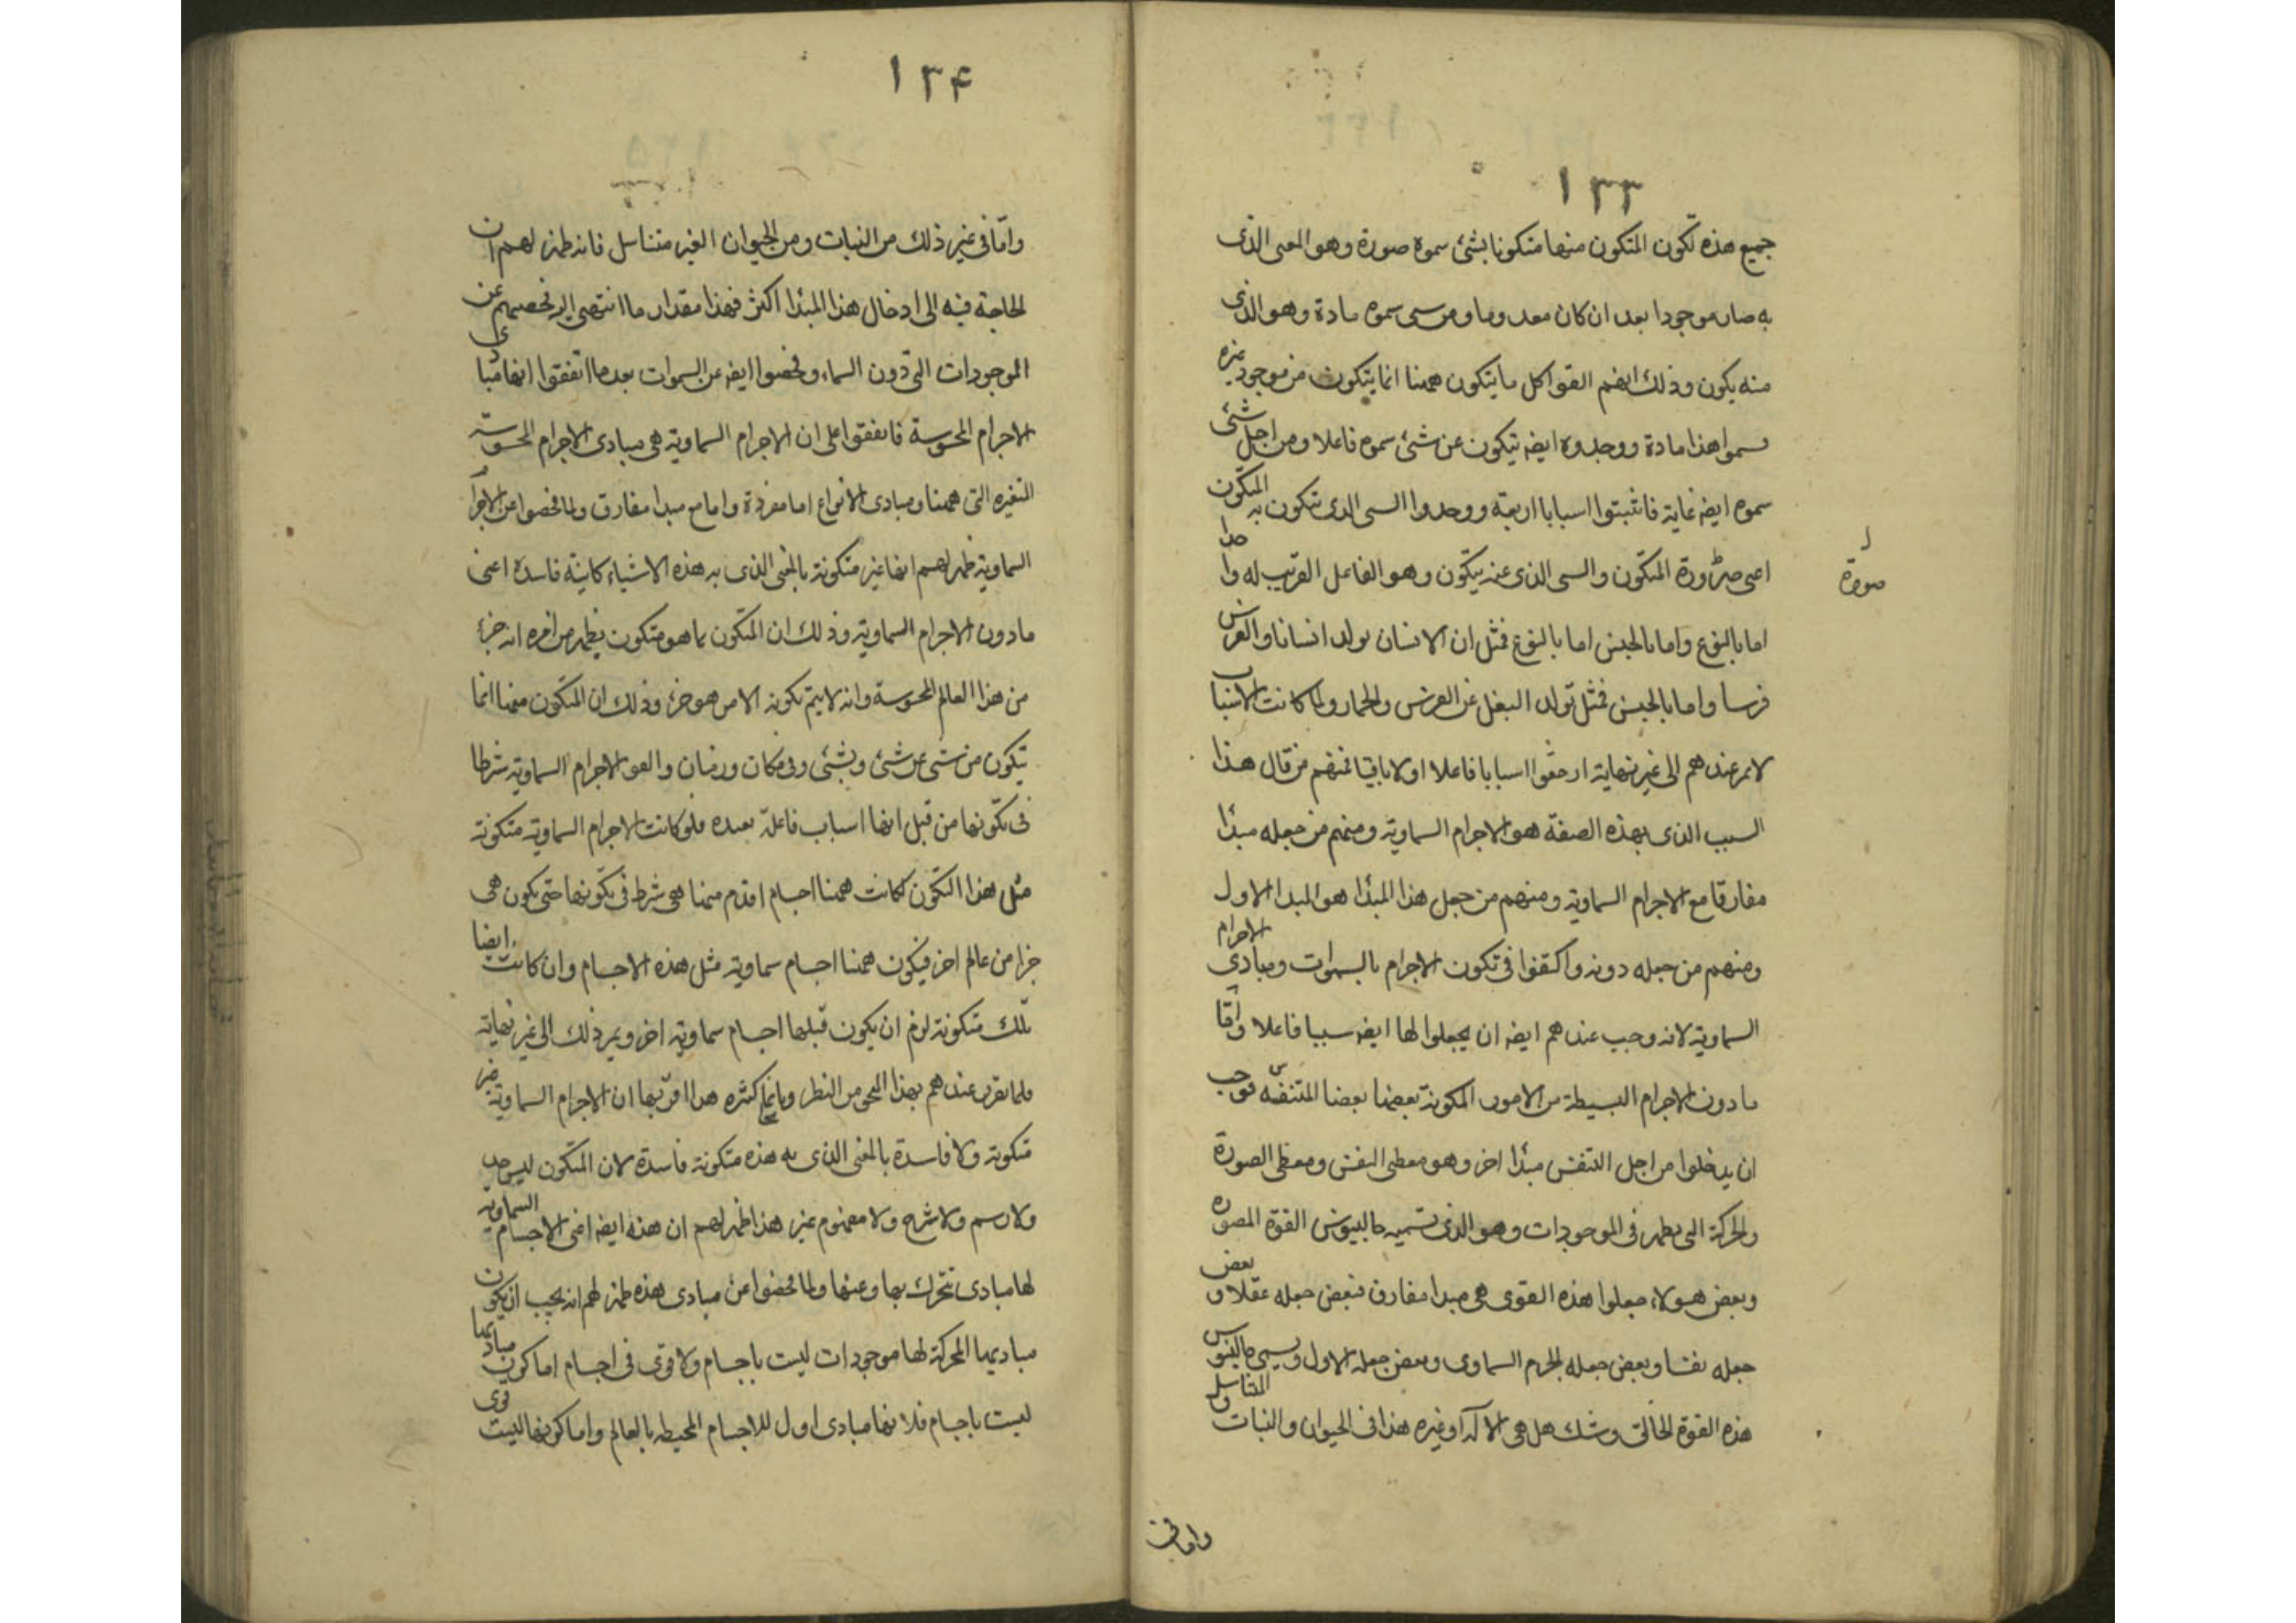 ١٣٣
جميع هذه تكون المتكون منها متكونا بشئ سموه صورة وهو المعنى الذى
به صار موجودا بعد ان كان معدوما ومن سموه مادة وهو الذى
منه يكون وذلك انهم الفوا كل ما يتكون ههنا انما يتكون من موجود غيره
فسموا هذا مادة ووجدوه ايضه يتكون عن شئ سموه فاعلا ومن اجل شئ
سموه ايضه غاية فاثبتوا اسبابا اربعة ووجدوا السى الدى يتكون به المتكون
اعى صورة المتكون والسى الذى عنه يتكون وهو الفاعل القريب له واحدا
صورة
اما بالنوع واما بالجنس اما بالنوع فمثل ان الانسان يولد انسانا والفرس
فرسا واما بالجنس فمثل تولد البغل عن الفرس والحمار ولما كانت الاسباب
لا تمر عندهم الى غير نهاية ادخلوا سببا فاعلا اولا باقيا فمنهم من قال هذا
السبب الذى بهذه الصفة هو الاجرام السماوية ومنهم من جعله مبدأ
مفارقا مع الاجرام السماوية ومنهم من جعل هذا المبدأ هو المبدا الاول
ومنهم من جعله دونه واكتفوا فى تكون الاجرام بالسموات ومبادى الاجرام
السماوية لانه وجب عندهم ايضه ان يجعلوا لها ايضه سببا فاعلا واما
ما دون الاجرام البسيطة من الامور المكونة بعضها بعضا المتنفسة فوجب
ان يدخلوا من اجل التنفس مبدأ اخر وهو معطى النفس ومعطى الصورة
والحركة التى تظهر فى الموجودات وهو الذى تسميه جالينوس القوة المصوره
وبعض هولاء جعلوا هذه القوى هى مبدا مفارق فبعض جعله عقلا وبعض
جعله نفسا وبعض جعله الجرم السماوى وبعض جعله الاول ويسمى جالينوس
هذه القوة الخالق وشك هل هى الاله او غيره هذا فى الحيوان والنبات المتناسل
واما فى
١٣۴
واما فى غير ذلك من النبات ومن الحيوان الغير متناسل فانه ظهر لهم ان
الحاجة فيه الى ادخال هذا المبدأ اكثر فهذا مقدار ما انتهى اليه فحصهم عن
الموجودات التى دون السماء وفحصوا ايضه عن السموات بعد ما اتفقوا انها مبادى
الاجرام المحسوسة فاتفقوا على ان الاجرام السماوية هى مبادى الاجرام المحسوسة
المتغيره التى ههنا ومبادى الانواع اما مفردة واما مع مبدا مفارق ولما فحصوا عن الاجرام
السماوية ظهر لهم انها غير متكونة بالمعنى الذى به هذه الاشياء كاينة فاسدة اعنى
ما دون الاجرام السماوية وذلك ان المتكون بما هو متكون يظهر من امره انه جزء
من هذا العالم المحسوسة وانه لا يتم تكونه الا من هو جزء وذلك ان المتكون منها انما
يتكون من شى عن شئ وبشئ وفى مكان وزمان والفوا الاجرام السماوية شرطا
فى تكونها من قبل انها اسباب فاعلة بعيده فلو كانت الاجرام السماوية متكونة
مثل هذا التكون لكانت ههنا اجسام اقدم منها هى شرط فى تكونها حتى يكون هى
جزا من عالم اخر فيكون ههنا اجسام سماوية مثل هذه الاجسام وان كانت ايضا
تلك متكونة لزم ان يكون قبلها اجسام سماوية اخر ويمر ذلك الى غير نهاية
فلما تقرر عندهم بهذا النحو من النظر وبانحاء كثيره هذا اقربها ان الاجرام السماوية غير
متكونة ولا فاسدة بالمعنى الذى به هذه متكونة فاسدة لان المتكون ليس حد
ولا رسم ولا شرح ولا مفهوم غير هذا ظهر لهم ان هذه ايضه اعنى الاجسام السماوية
لها مبادى تتحرك بها وعنها ولما فحصوا عن مبادى هذه ظهر لهم انه يجب ان يكون
مباديها المحركة لها موجودات ليست باجسام ولا قوى فى اجسام اما كون مباديها
ليست باجسام فلانها مبادى اول للاجسام المحيطه بالعالم واما كونها ليست قوى